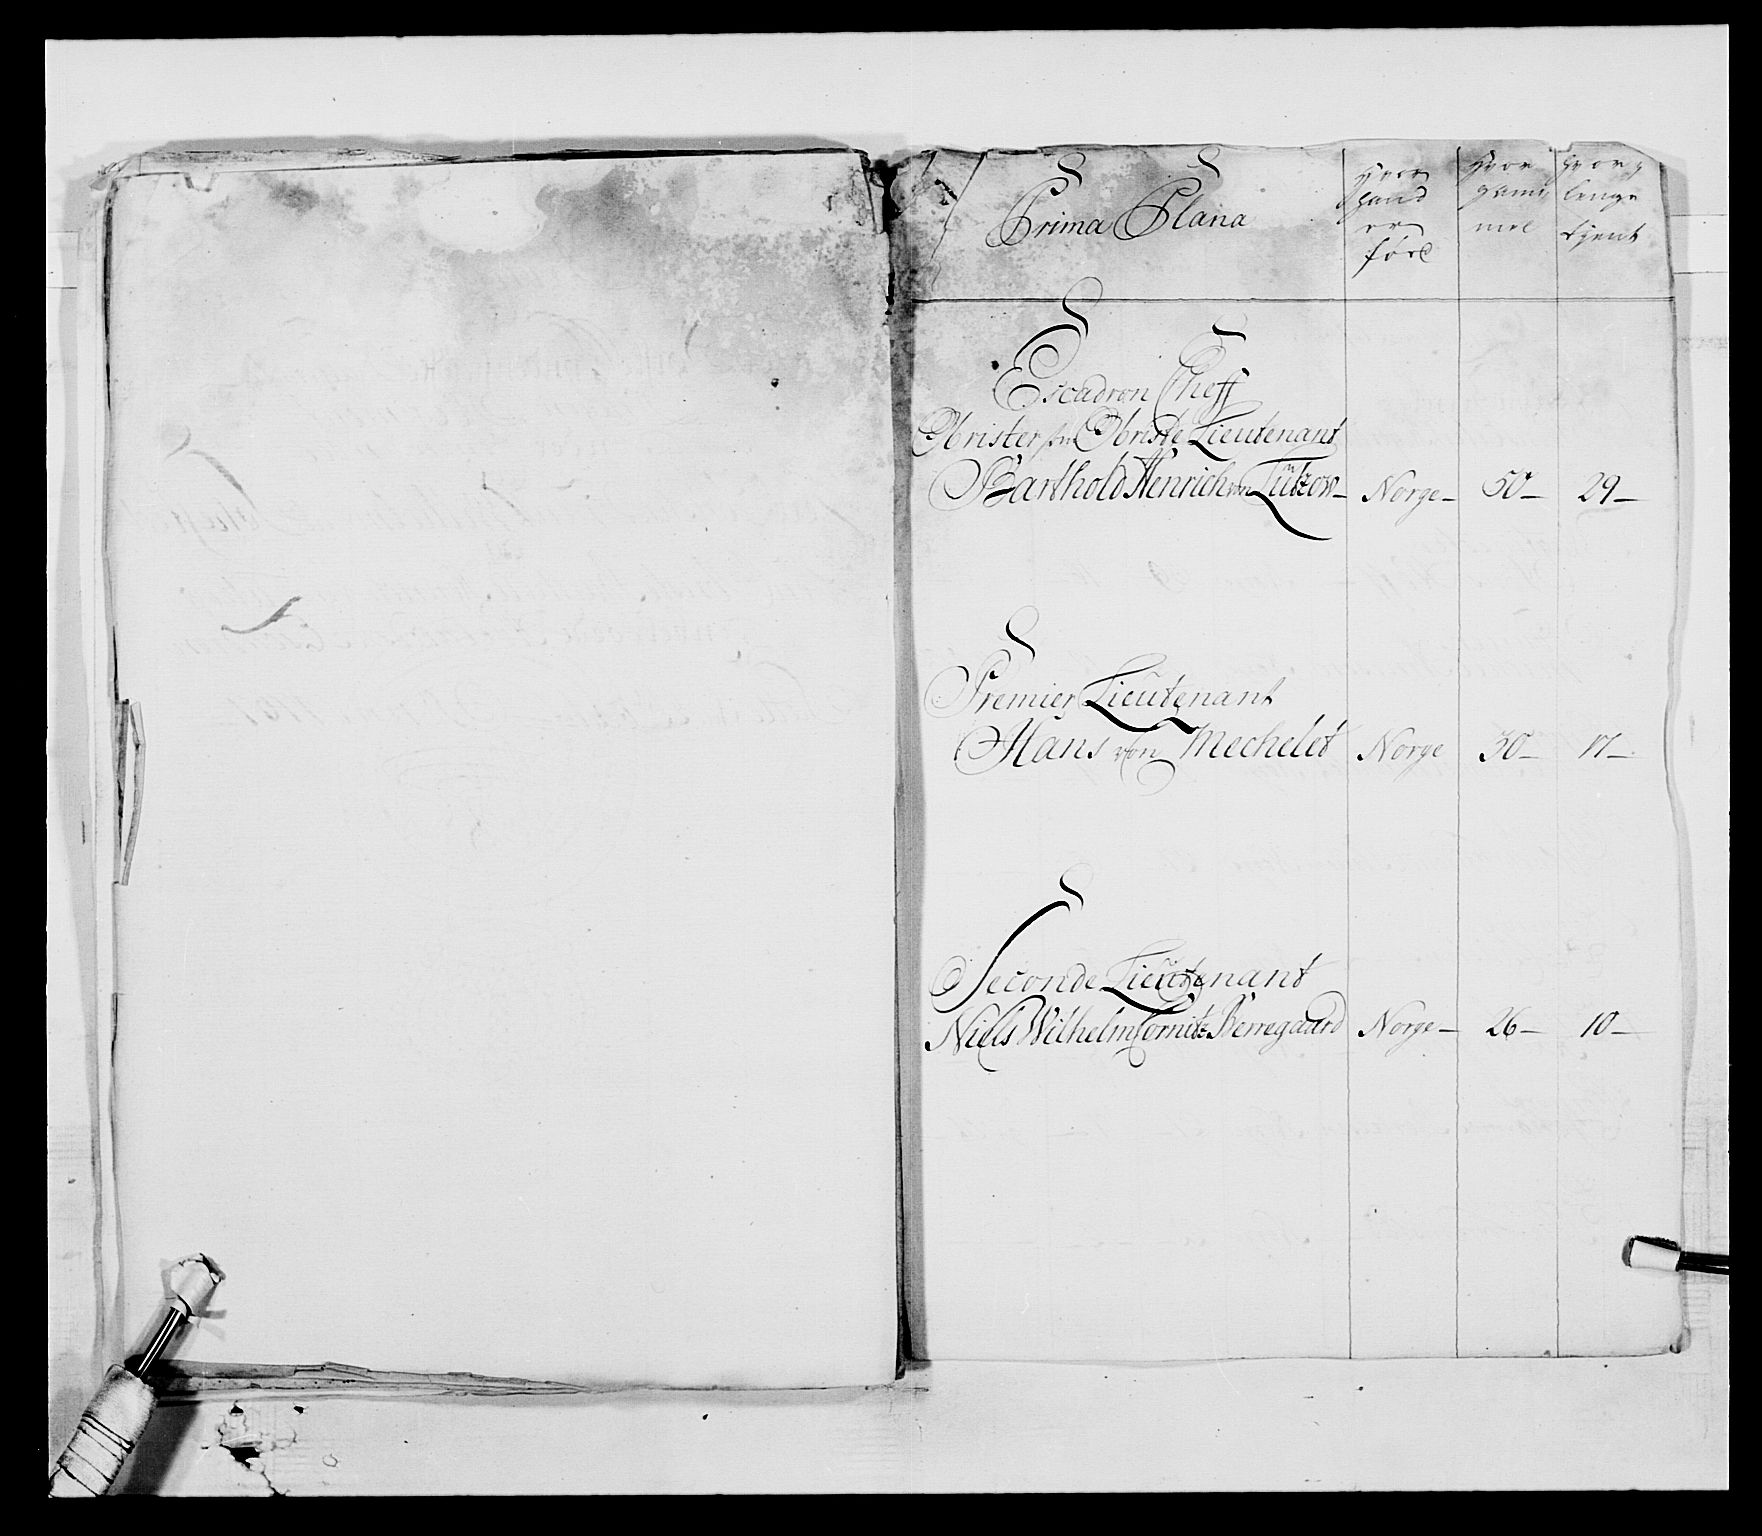 Prima Plana
Hvor
hand
er
før
Hvor
gam̃
mel
Hvor
lenge
tient
Escadron Cheff
Obrister Obriste Lieutenant
Barthold Henrich von Lützow Norge 50 29
Premier Lieutenant
Hans von Mechelet Norge 30 17
Seconde Lieutenant
Niels Wilhelm Cornitz Berregaard Norge 26 10